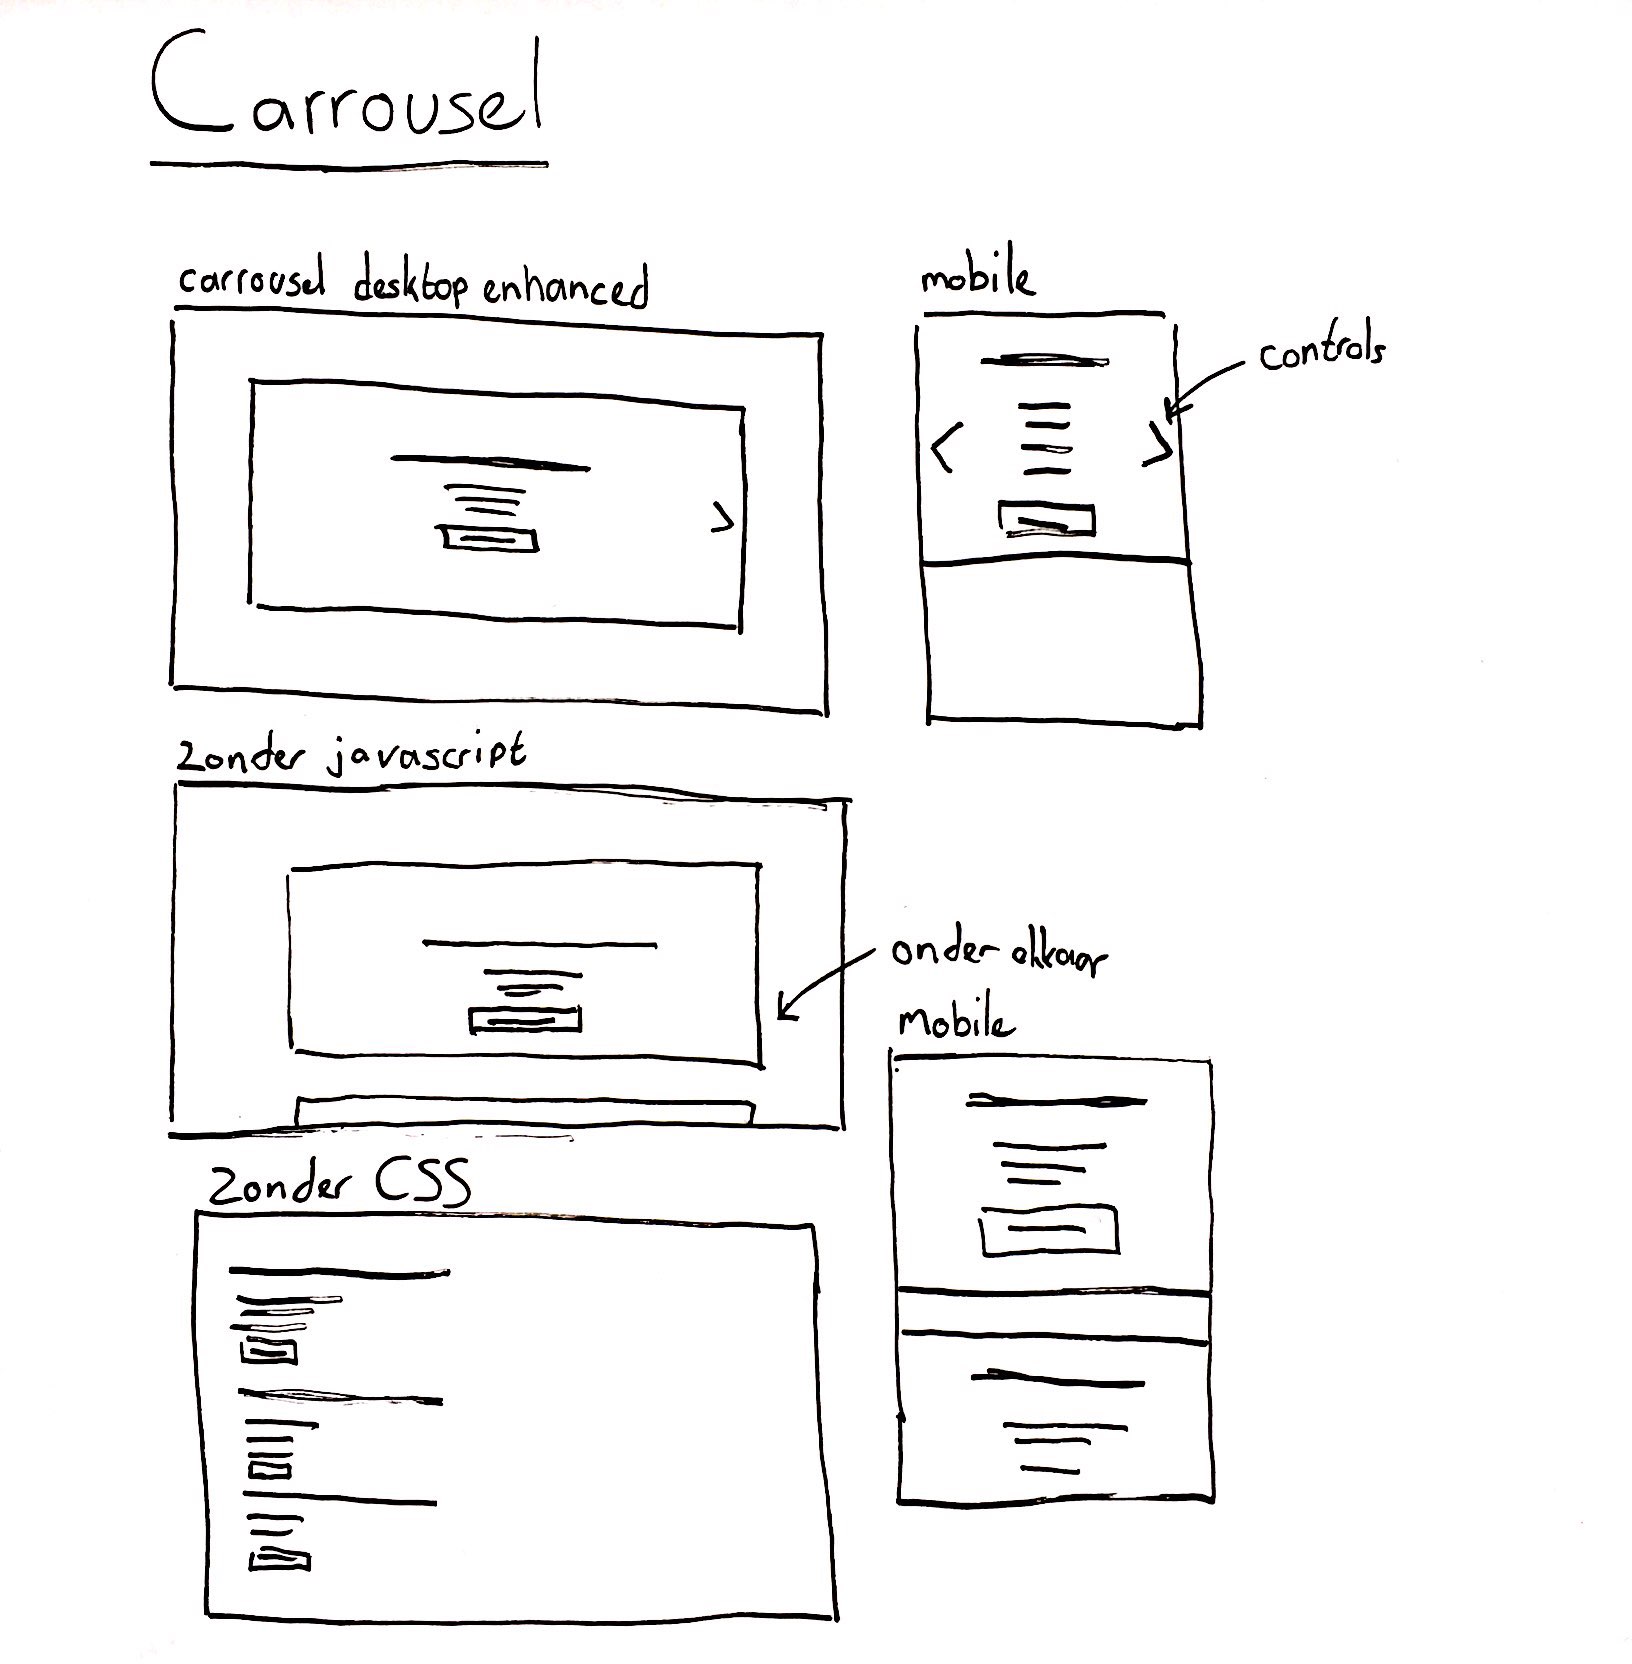 Carrousel
carrousel desktop enhanced
mobile
controls
zonder javascript
onder elkaar
Mobile
zonder CSS